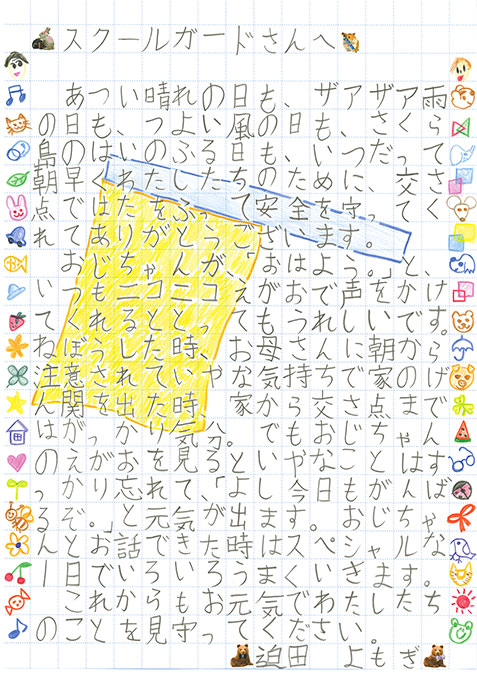 スクールガードさんへ
あつい晴れの日も、ザアザア雨
の日も、つよい風の日も、さくら
島のはいのふる日も、いつだって
朝早くわたしたちのために、交さ
点ではたをふって安全を守ってく
れてありがとうございます。
おじちゃんが、「おはよっ。」と
いつもニコニコえがおで声をかけ
てくれるととってもうれしいです。
ねぼうした時、お母さんに朝から
注意されていやな気持ちで家のげ
ん関を出た時、家から交さ点まで
はがっかり気分。でもおじちゃん
のえがおを見るといやなことはす
っかり忘れて「よし今日もがんば
るぞ。」と元気が出ます。おじちゃ
んとお話できた時はスペシャルな
1日でいろいろうまくいきます。
これからもお元気でわたしたち
のことを見守ってください。
迫田 よもぎ